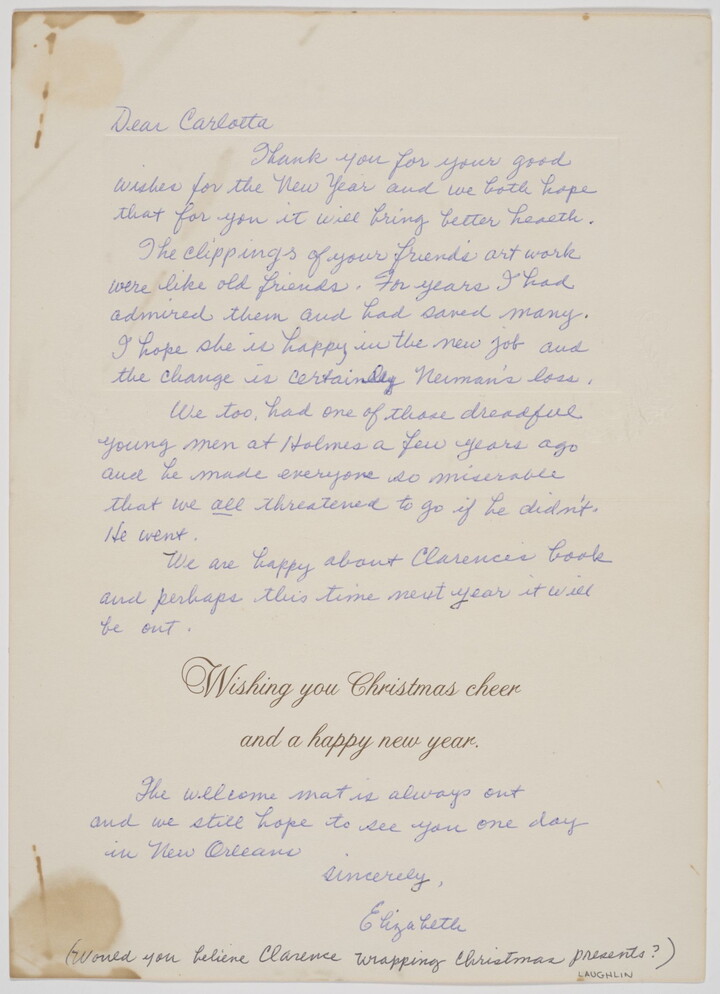 Dear Carlotta
Thank you for your good
wishes for the New Year and we both hope
that for you it will bring better health.
The clippings of your friend's art work
were like old friends. For years I had
admired them and had saved many.
I hope she is happy in the new job and
the change is certainly Neiman's loss.
We too, had one of those dreadful
young men at Holmes a few years ago
and he made everyone so miserable
that we all threatened to go if he didn't.
He went.
We are happy about Clarence's book
and perhaps this time next year it will
be out.
Wishing you Christmas cheer
and a happy new year.
The wellcome mat is always out
and we still hope to see you one day
in New Orleans
Sincerely,
Elizabeth
(Would you believe Clarence wrapping Christmas presents?)
LAUGHLIN